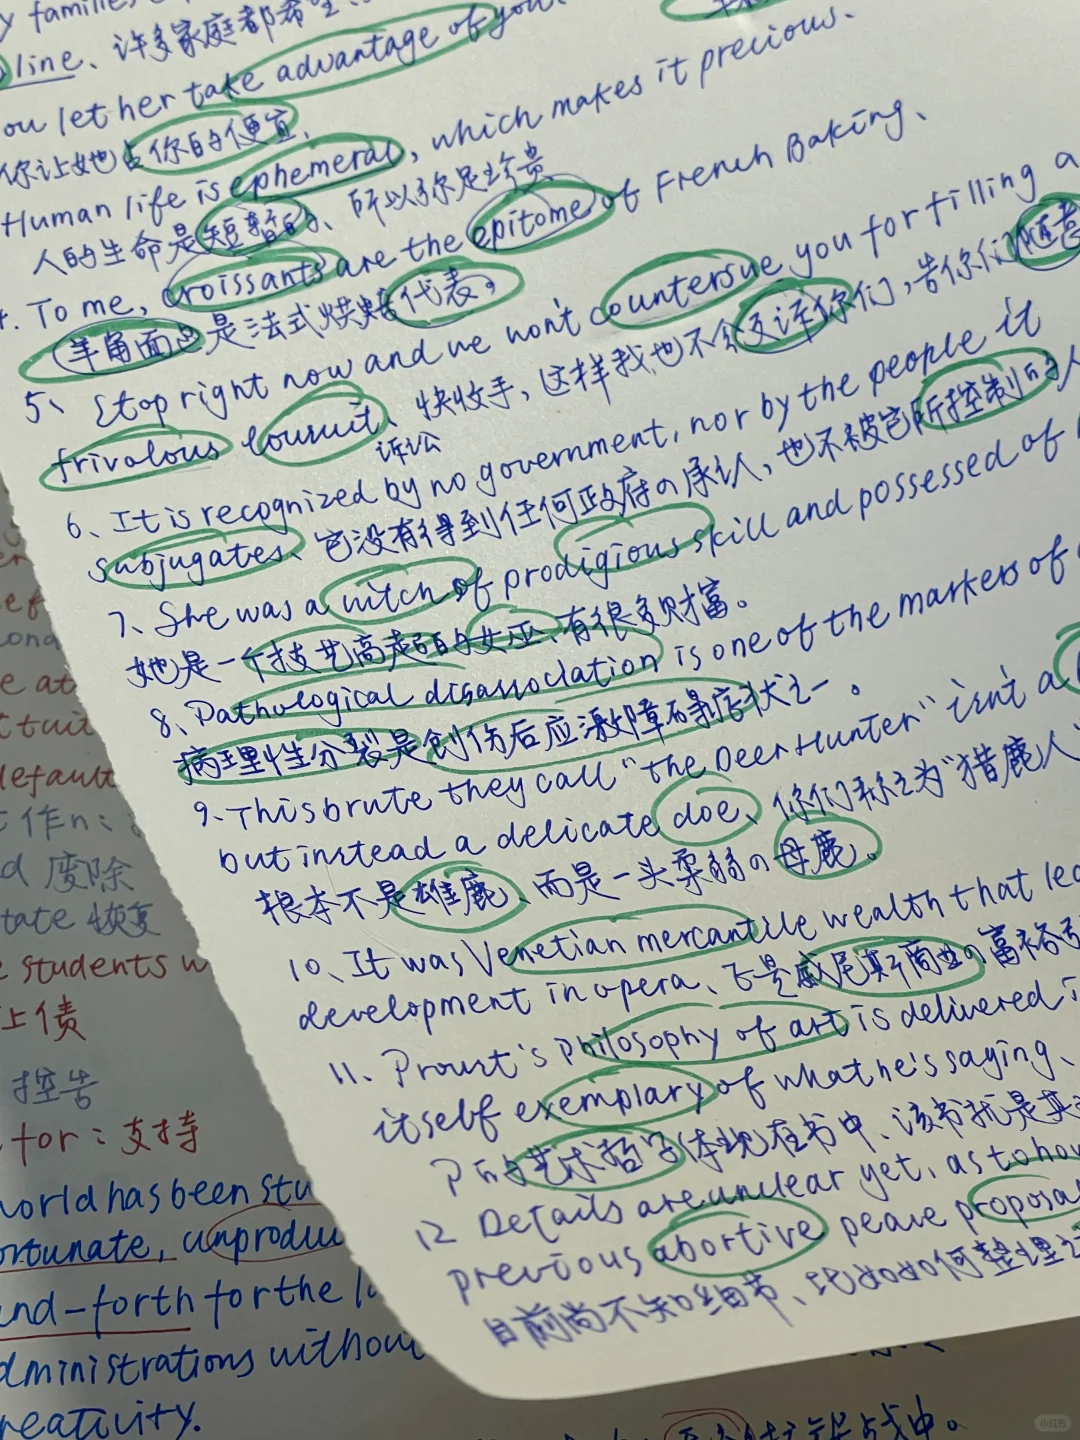 y families
line、许多家庭都希望
ou let her take advantage of you.
你让她占你的便宜.
Human life is ephemeral, which makes it precious.
人的生命是短暂的、所以弥足珍贵
4. To me, croissants are the epitome of French Baking、
羊角面包是法式烘焙代表。
5、Stop right now and we won't countersue you for filling a
frivolous lawsuit、快收手，这样我也不会反诉你们，告你们随意
诉讼
6、It is recognized by no government, nor by the people it
subjugates、它没有得到任何政府の承认，也不被它所控制的人
7、She was a witch of prodigious skill and possessed of
她是一个技艺高超的女巫、有很多财富。
8、Pathological disassociation is one of the markers of
病理性分裂是创伤后应激障碍症状之一。
9、This brute they call "the Deer Hunter" isn't a
but instead a delicate doe、你们称之为"猎鹿人"
根本不是雄鹿、而是一头柔弱の母鹿。
10、It was Venetian mercantile wealth that led
development in opera、正是威尼斯商业の富裕
11、Proust's philosophy of art is delivered
itself exemplary of what he's saying、
P的艺术哲学体现在书中、该书就是其
12 Details are unclear yet, as to how
previous abortive peace proposa
目前尚不知细节、比如如何整理
cond
e at
t tuit
default
作n：
d 废除
tate 恢复
e students w
上债
控告
for：支持
world has been stu
ortunate, unprodu
nd-forth for the l
dministrations without
reativity.
战中。
小红书